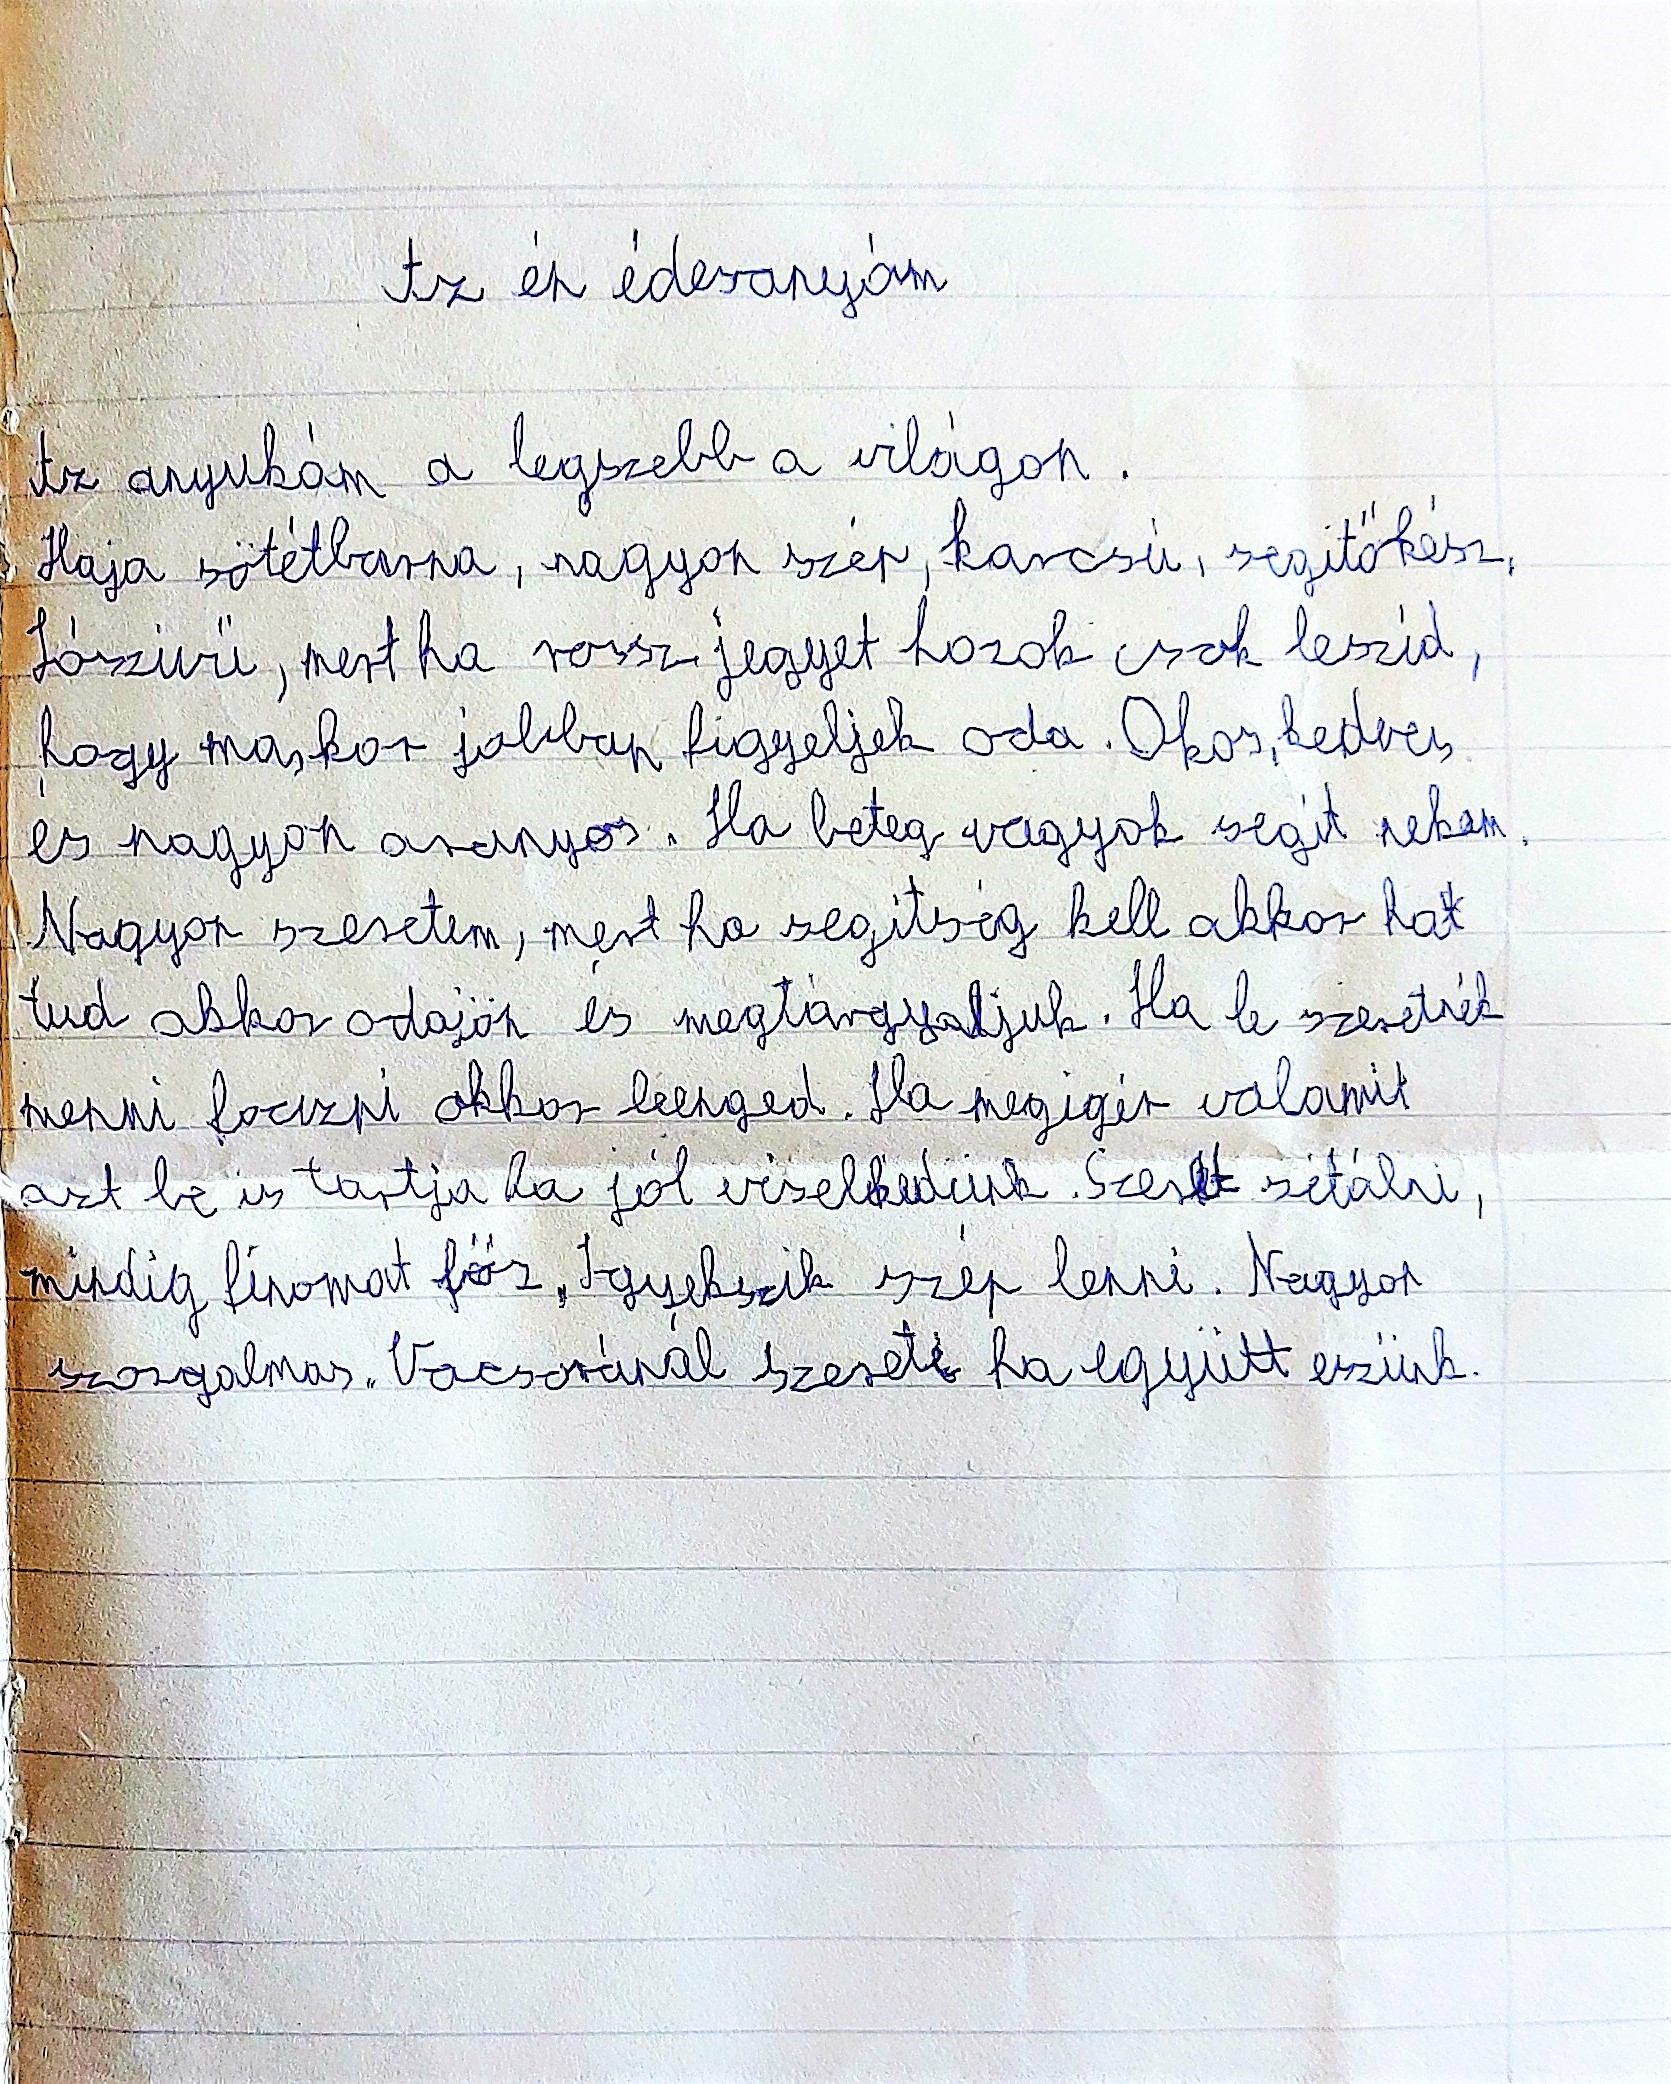 Az én édesanyám
Az anyukám a legszebb a világon.
Haja sötétbarna, nagyon szép, karcsú, segitőkész,
Jószivü, mert ha rossz jegyet hozok csak leszid,
hogy máskor jobban figyeljek oda. Okos, kedves
és nagyon aranyos. Ha beteg vagyok segit nekem.
Nagyon szeretem, mert ha segitség kell akkor hat
tud akkor odajön és megtárgyaljuk. Ha le szeretnék
menni focizni akkor leenged. Ha megigér valamit
azt be is tartja ha jól viselkedünk. Szeret sétálni,
mindig finomat főz. Igyekszik szép lenni. Nagyon
szorgalmas. Vacsoránál szereti ha együtt eszünk.